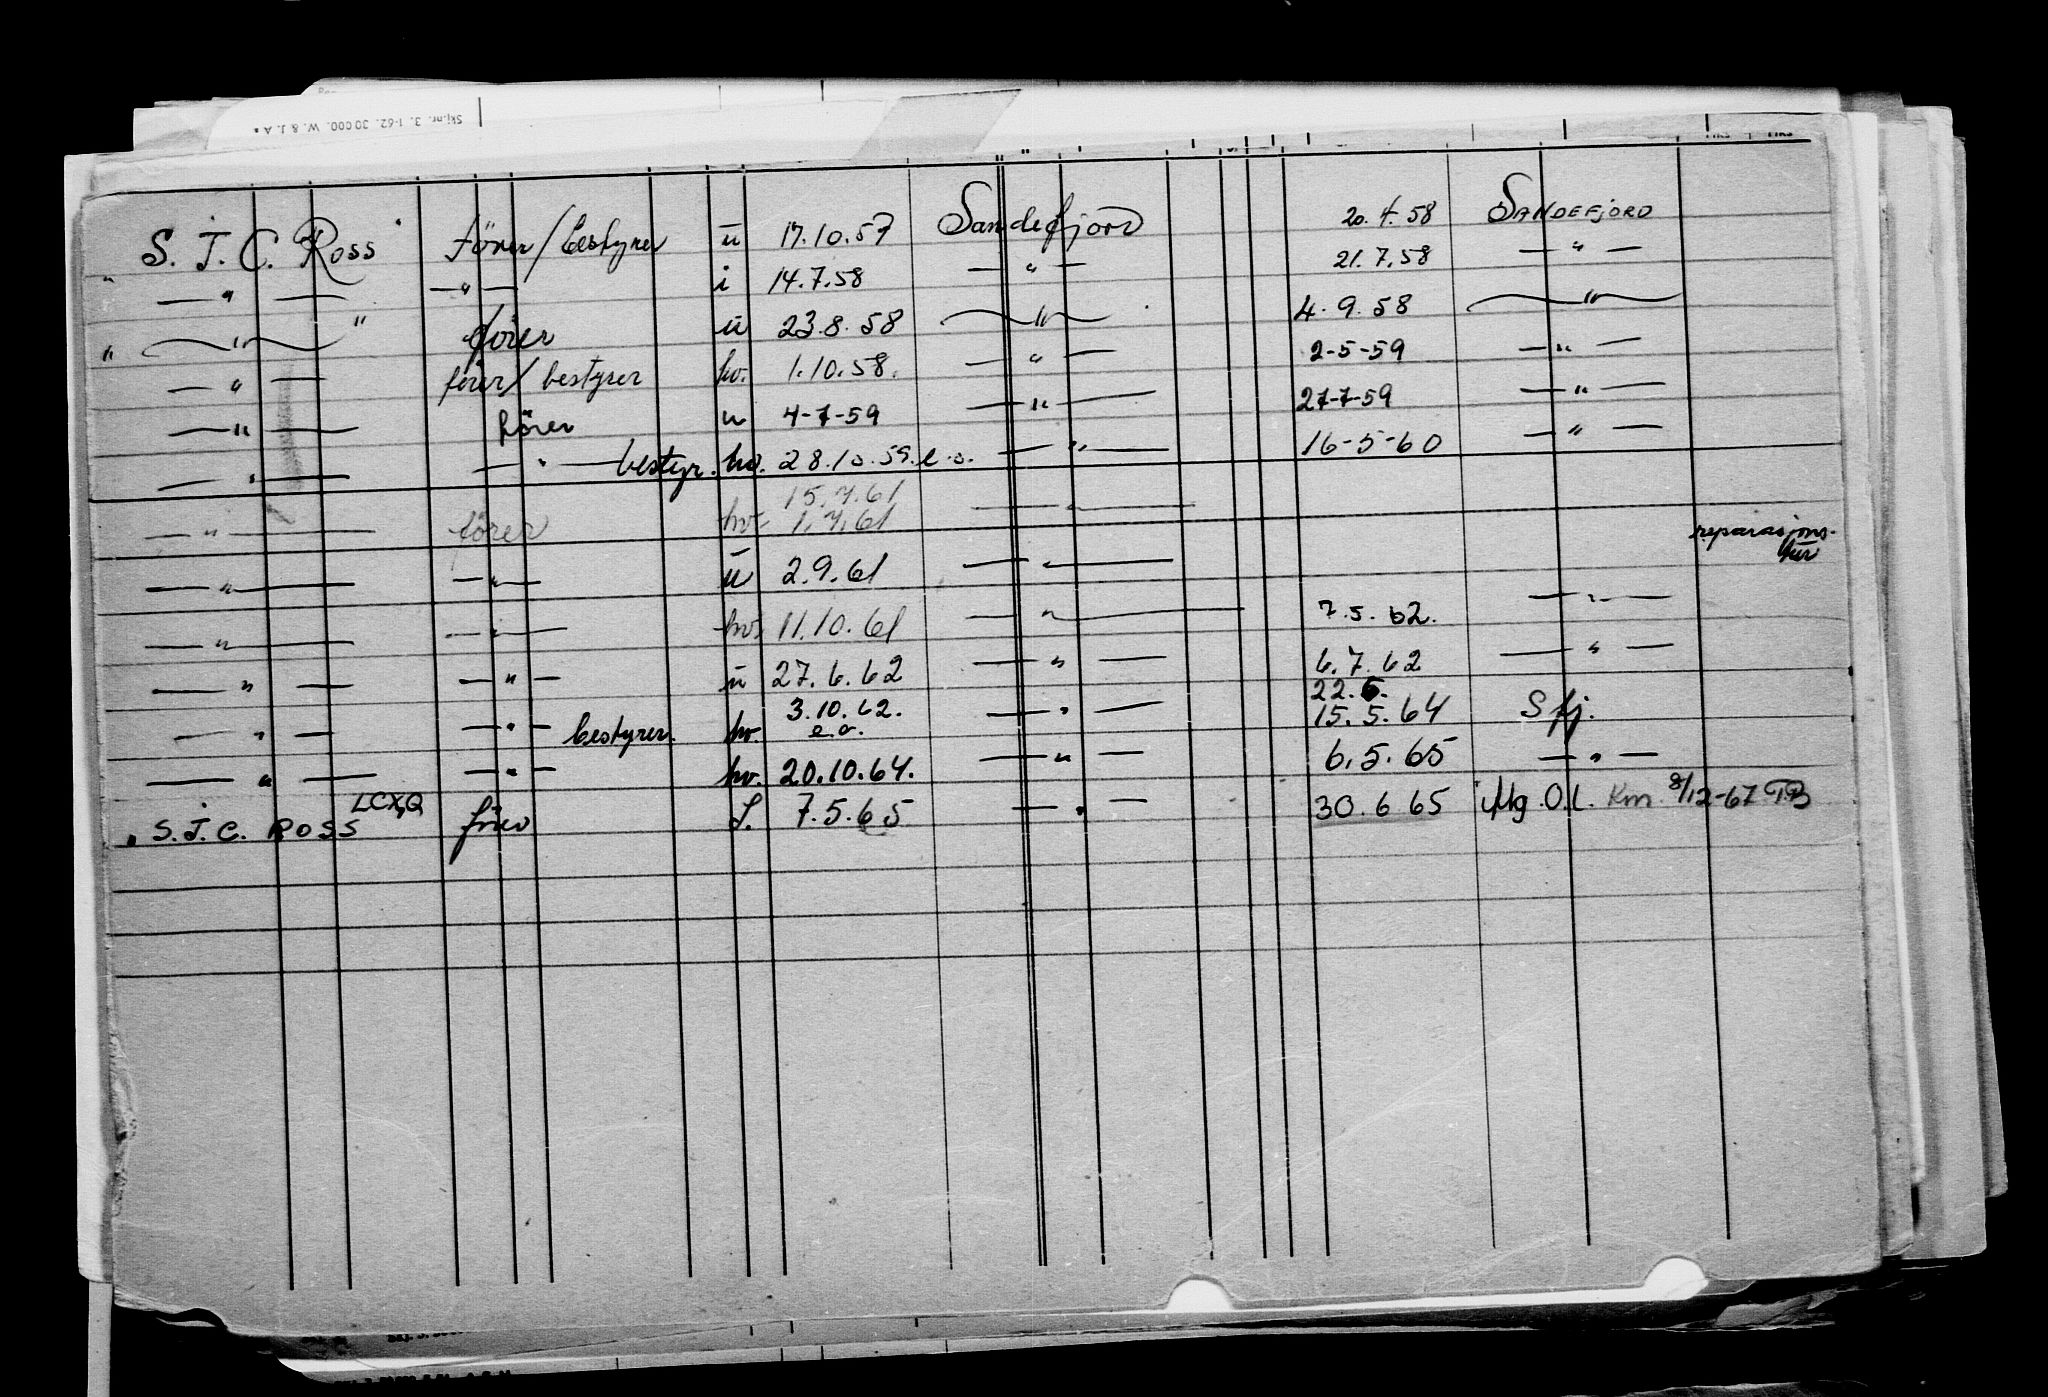 Skj.nr. 3. 1-62. 30 000. W. & J. A.
" S. J. C. Ross " förer / bestyrer ū 17.10.57 Sandefjord 20.4.58 SANDEFJORD
— " — — " — i 14.7.58 — " — 21.7.58 — " —
" — " — " förer ū 23.8.58 — " — 4.9.58 — " —
— " — förer / bestyrer hv. 1.10.58. — " — 2-5-59 — " —
— " — förer u 4-7-59 — " — 27-7-59 — " —
— " — — " — bestyr. hv. 28.10.59. e.o. — " — 16-5-60 — " —
15.7.61
— " — förer hv. 1.7.61 — " —
— " — — " — ū 2.9.61 — " — reparasjons-
tur
— " — — " — hv. 11.10.61 — " — 7.5.62. — " —
— " — — " — ū 27.6.62 — " — 6.7.62 — " —
3.10.62. 22.5.
— " — — " — bestyrer. hv. e.o. — " — 15.5.64 Sfj.
— " — — " — hv. 20.10.64. — " — 6.5.65 — " —
LCXQ
" S. J. C. ROSS förer S. 7.5.65 — " — 30.6 65 Mg. O.l. Km. 8/12-67 TB